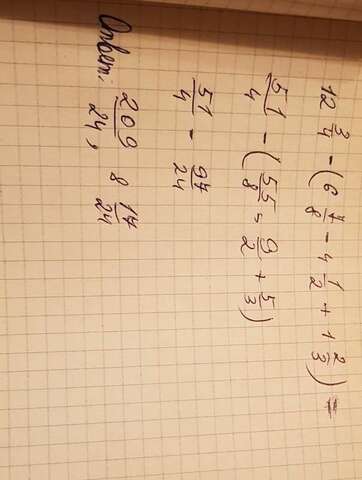 12 3/4 - (6 7/8 - 4 1/2 + 1 2/3) =
51/4 - (55/8 - 9/2 + 5/3)
51/4 - 97/24
Ответ: 209/24, 8 17/24